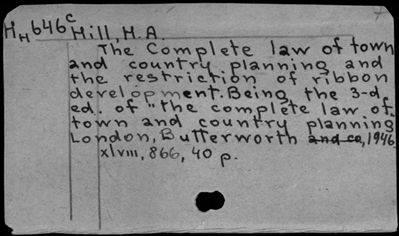 HH646c Hill, H.A.
The Complete law of town
and country planning and
the restriction of ribbon
development. Being the 3-d
ed. of "the complete law of
town and country planning
London, Butterworth and co, 1946
xlviii, 866, 40 p.